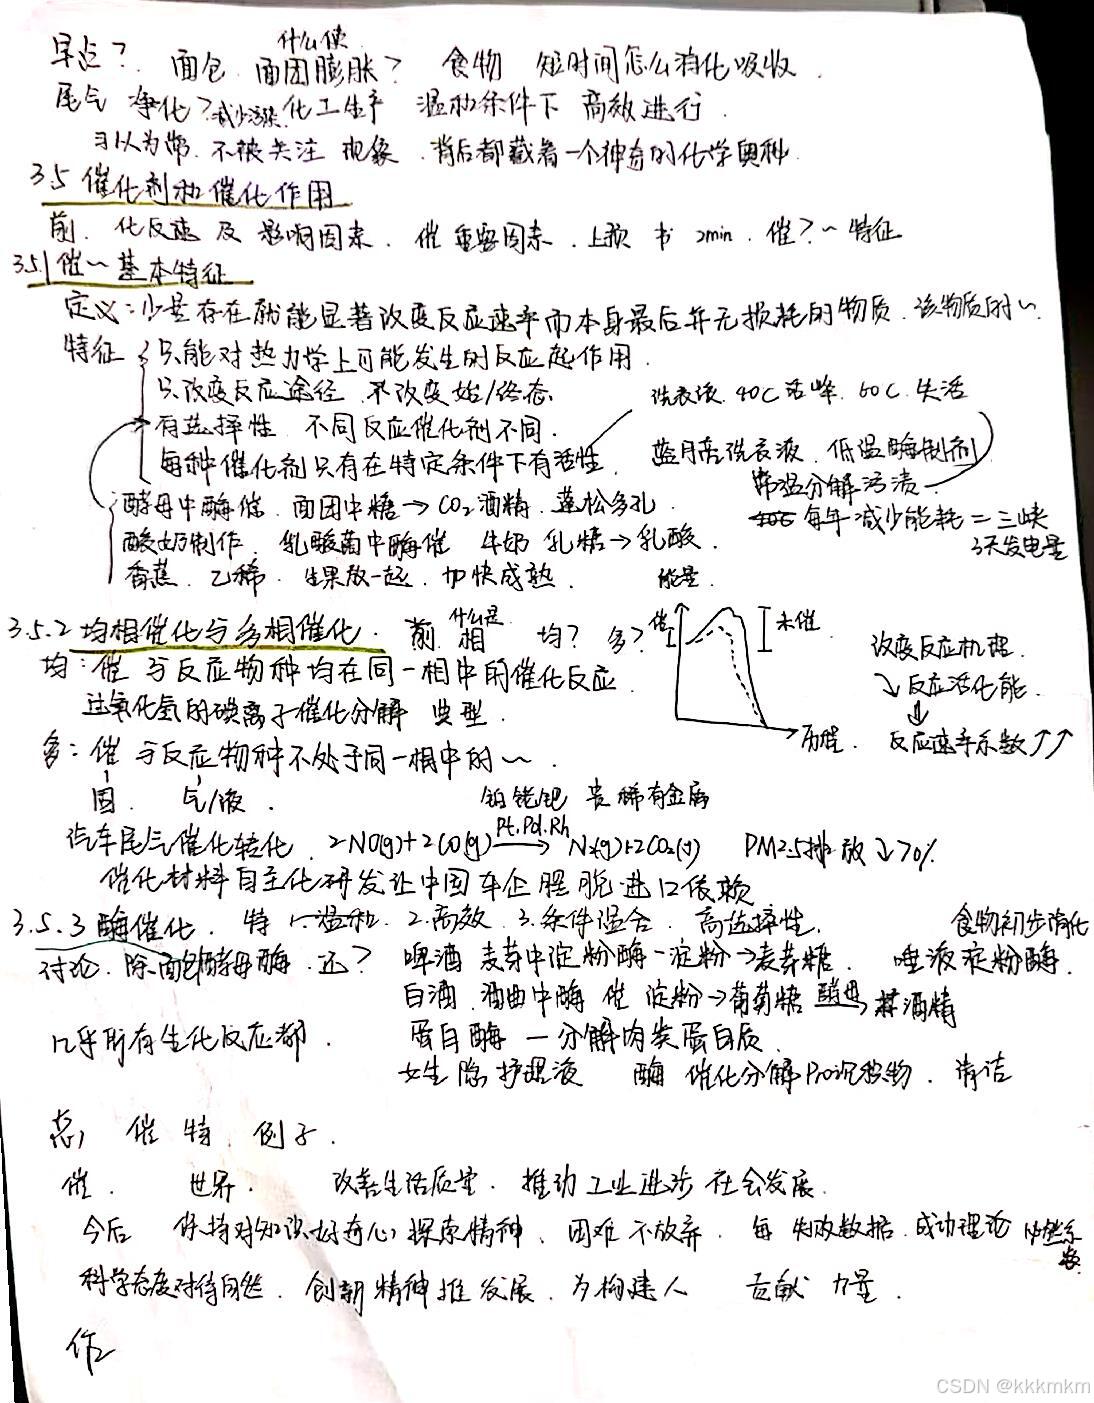 早点? 面包 什么使 面团膨胀? 食物 短时间怎么消化吸收.
尾气 净化? 减少污染. 化工生产 温和条件下 高效进行.
习以为常. 不被关注 现象. 背后都藏着一个神奇的化学奥秘.
3.5 催化剂和催化作用
前. 化反速 及 影响因素. 催 重要因素. 上颁 书 2min. 催?~特征
3.5.1 催~基本特征
定义:少量存在就能显著改变反应速率而本身最后并无损耗的物质. 该物质的~.
特征 只能对热力学上可能发生的反应起作用.
只改变反应途径 不改变始/终态.
洗衣液. 40℃活峰. 60℃失活
有选择性 不同反应催化剂不同.
每种催化剂只有在特定条件下有活性.
蓝月亮洗衣液. 低温酶制剂
常温分解污渍
酵母中酶催. 面团中糖→CO2 酒精. 蓬松多孔.
每年减少能耗=三峡
3天发电量
酸奶制作. 乳酸菌中酶催 牛奶 乳糖→乳酸.
香蕉. 乙稀. 生果放一起. 加快成熟.
能量.
3.5.2 均相催化与多相催化. 前 什么是 相 均? 多?
催 未催.
改变反应机理.
↘反应活化能.
⇓
历程. 反应速率系数↗↗
均:催 与反应物种均在同一相中的催化反应.
过氧化氢的碘离子催化分解 典型.
多:催 与反应物种不处于同一相中的~.
固. 气/液.
铂铑钯 贵稀有金属
汽车尾气催化转化. 2NO(g)+2CO(g) Pt.Pd.Rh → N2(g)+2CO2(g) PM2.5排放↘70%
催化材料自主化研发让中国车企摆脱进口依赖
3.5.3 酶催化. 特 1.温和. 2.高效 3.条件温合. 高选择性.
食物初步消化
讨论. 除面包酵母酶. 还? 啤酒 麦芽中淀粉酶-淀粉→麦芽糖. 唾液淀粉酶.
白酒. 酒曲中酶 催 淀粉→葡萄糖 酵母→ 酒精
几乎所有生化反应都. 蛋白酶 — 分解肉类蛋白质.
女生隐护理液 酶 催化分解Pro沉积物. 清洁
总) 催 特. 例子.
催. 世界. 改善生活质量. 推动工业进步 社会发展.
今后 保持对知识好奇心 探索精神. 困难不放弃. 每 失败数据. 成功理论 必然系数.
科学态度对待自然. 创新精神推发展. 为构建人 贡献 力量.
作2
CSDN @kkkmkm